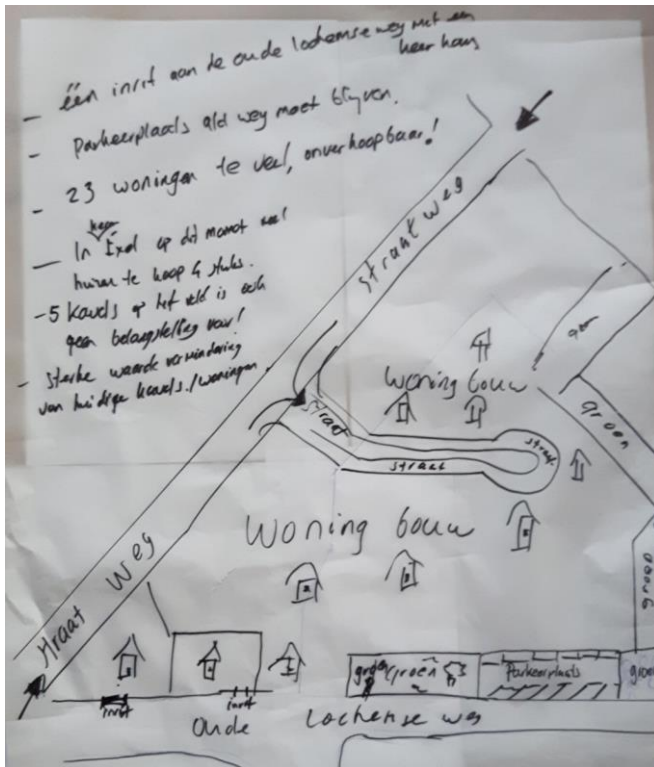 - één inrit aan de oude lochemseweg met een
keer kans
- Parkeerplaats ald weg moet blijven.
- 23 woningen te veel, onverkoopbaar!
keer
- In Exel op dit moment veel
huizen te koop 4 stuks.
- 5 kavels op het veld is ook
geen belangstelling voor!
- sterke waarde vermindering
van huidige kavels./woningen.
straatweg
groen
Woning bouw
groen
straat
straat
straat
Woning bouw
groen
straat weg
groen
groen
Parkeerplaats
groen
inrit
inrit
Oude Lochemse weg